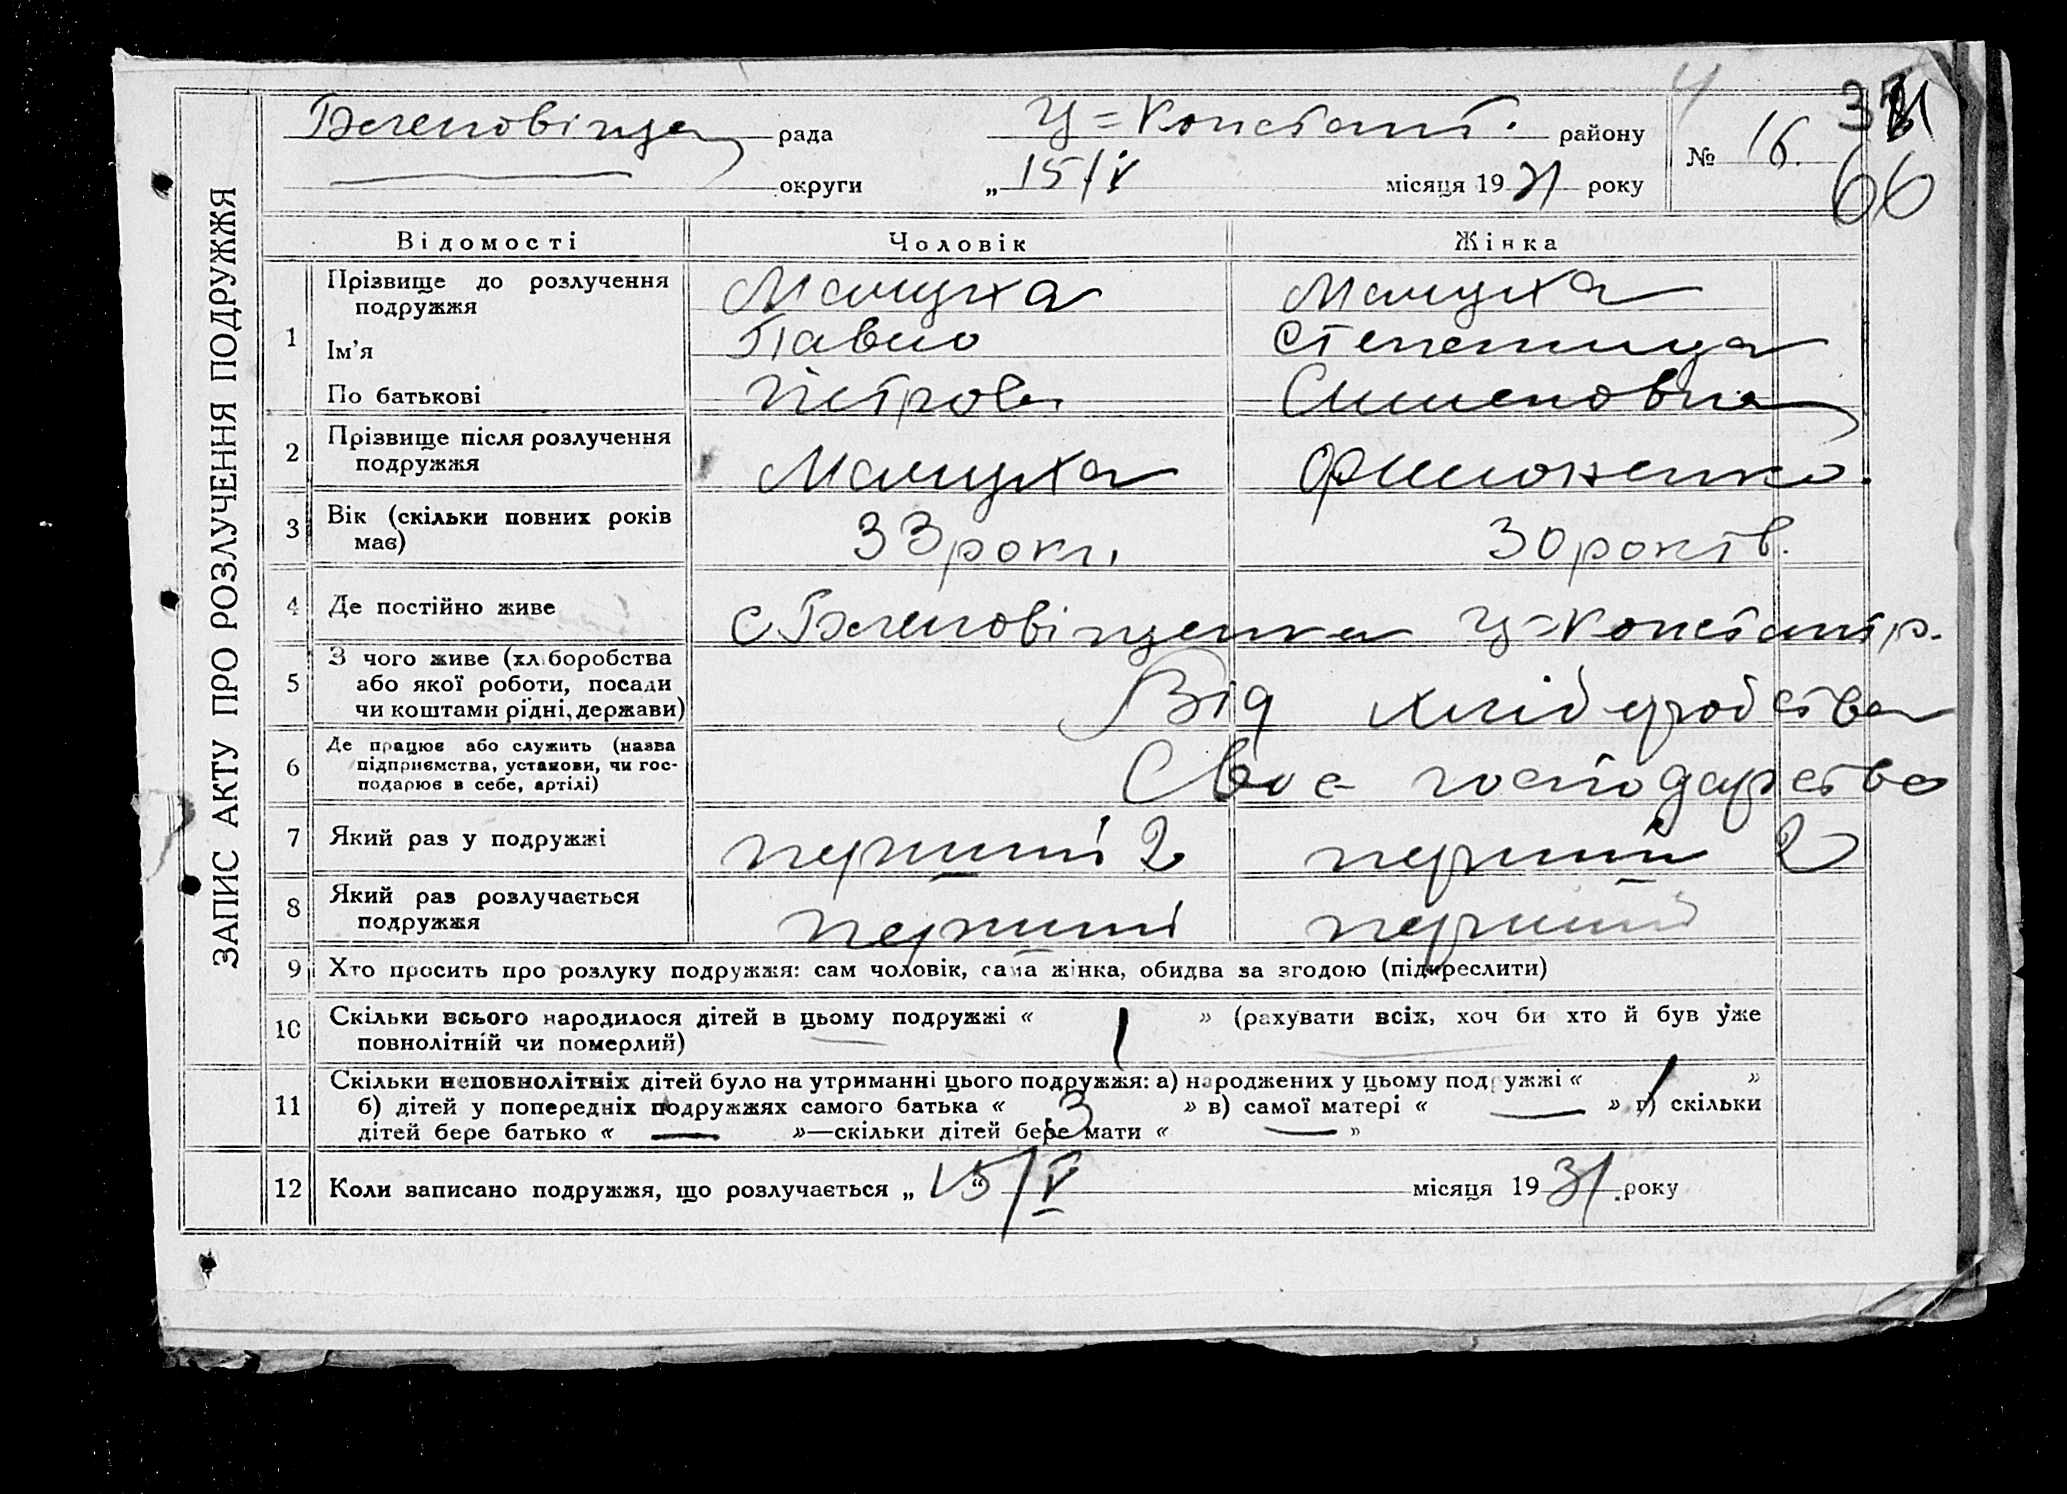 4
371
ЗАПИС АКТУ ПРО РОЗЛУЧЕННЯ ПОДРУЖЖЯ
рада
Ц=Констант. району
№ 16.
66
округи
„ 15/V місяця 1931 року
Відомості Чоловік Жінка
1 Прізвище до розлучення подружжя
Мамуха Мамуха
Ім'я Павло
По батькові Петров
2 Прізвище після розлучення подружжя
Мамуха Филоненко.
3 Вік (скільки повних років має)
33 роки 30 років.
4 Де постійно живе
Ц=Констант р.
5 З чого живе (хліборобства або якої роботи, посади чи коштами рідні, держави)
Від хліборобства
6 Де працює або служить (назва підприємства, установи, чи господарює в себе, артілі)
Своє господарство
7 Який раз у подружжі перший 2 перший 2
8 Який раз розлучається подружжя
перший перший
9 Хто просить про розлуку подружжя: сам чоловік, сама жінка, обидва за згодою (підкреслити)
10 Скільки всього народилося дітей в цьому подружжі « 1 » (рахувати всіх, хоч би хто й був уже
повнолітній чи померлий)
11 Скільки неповнолітніх дітей було на утриманні цього подружжя: а) народжених у цьому подружжі « 1 »
б) дітей у попередніх подружжях самого батька « 3 » в) самої матері « — » г) скільки
дітей бере батько « — »—скільки дітей бере мати « — »
12 Коли записано подружжя, що розлучається „ 15/V “ місяця 1931 року